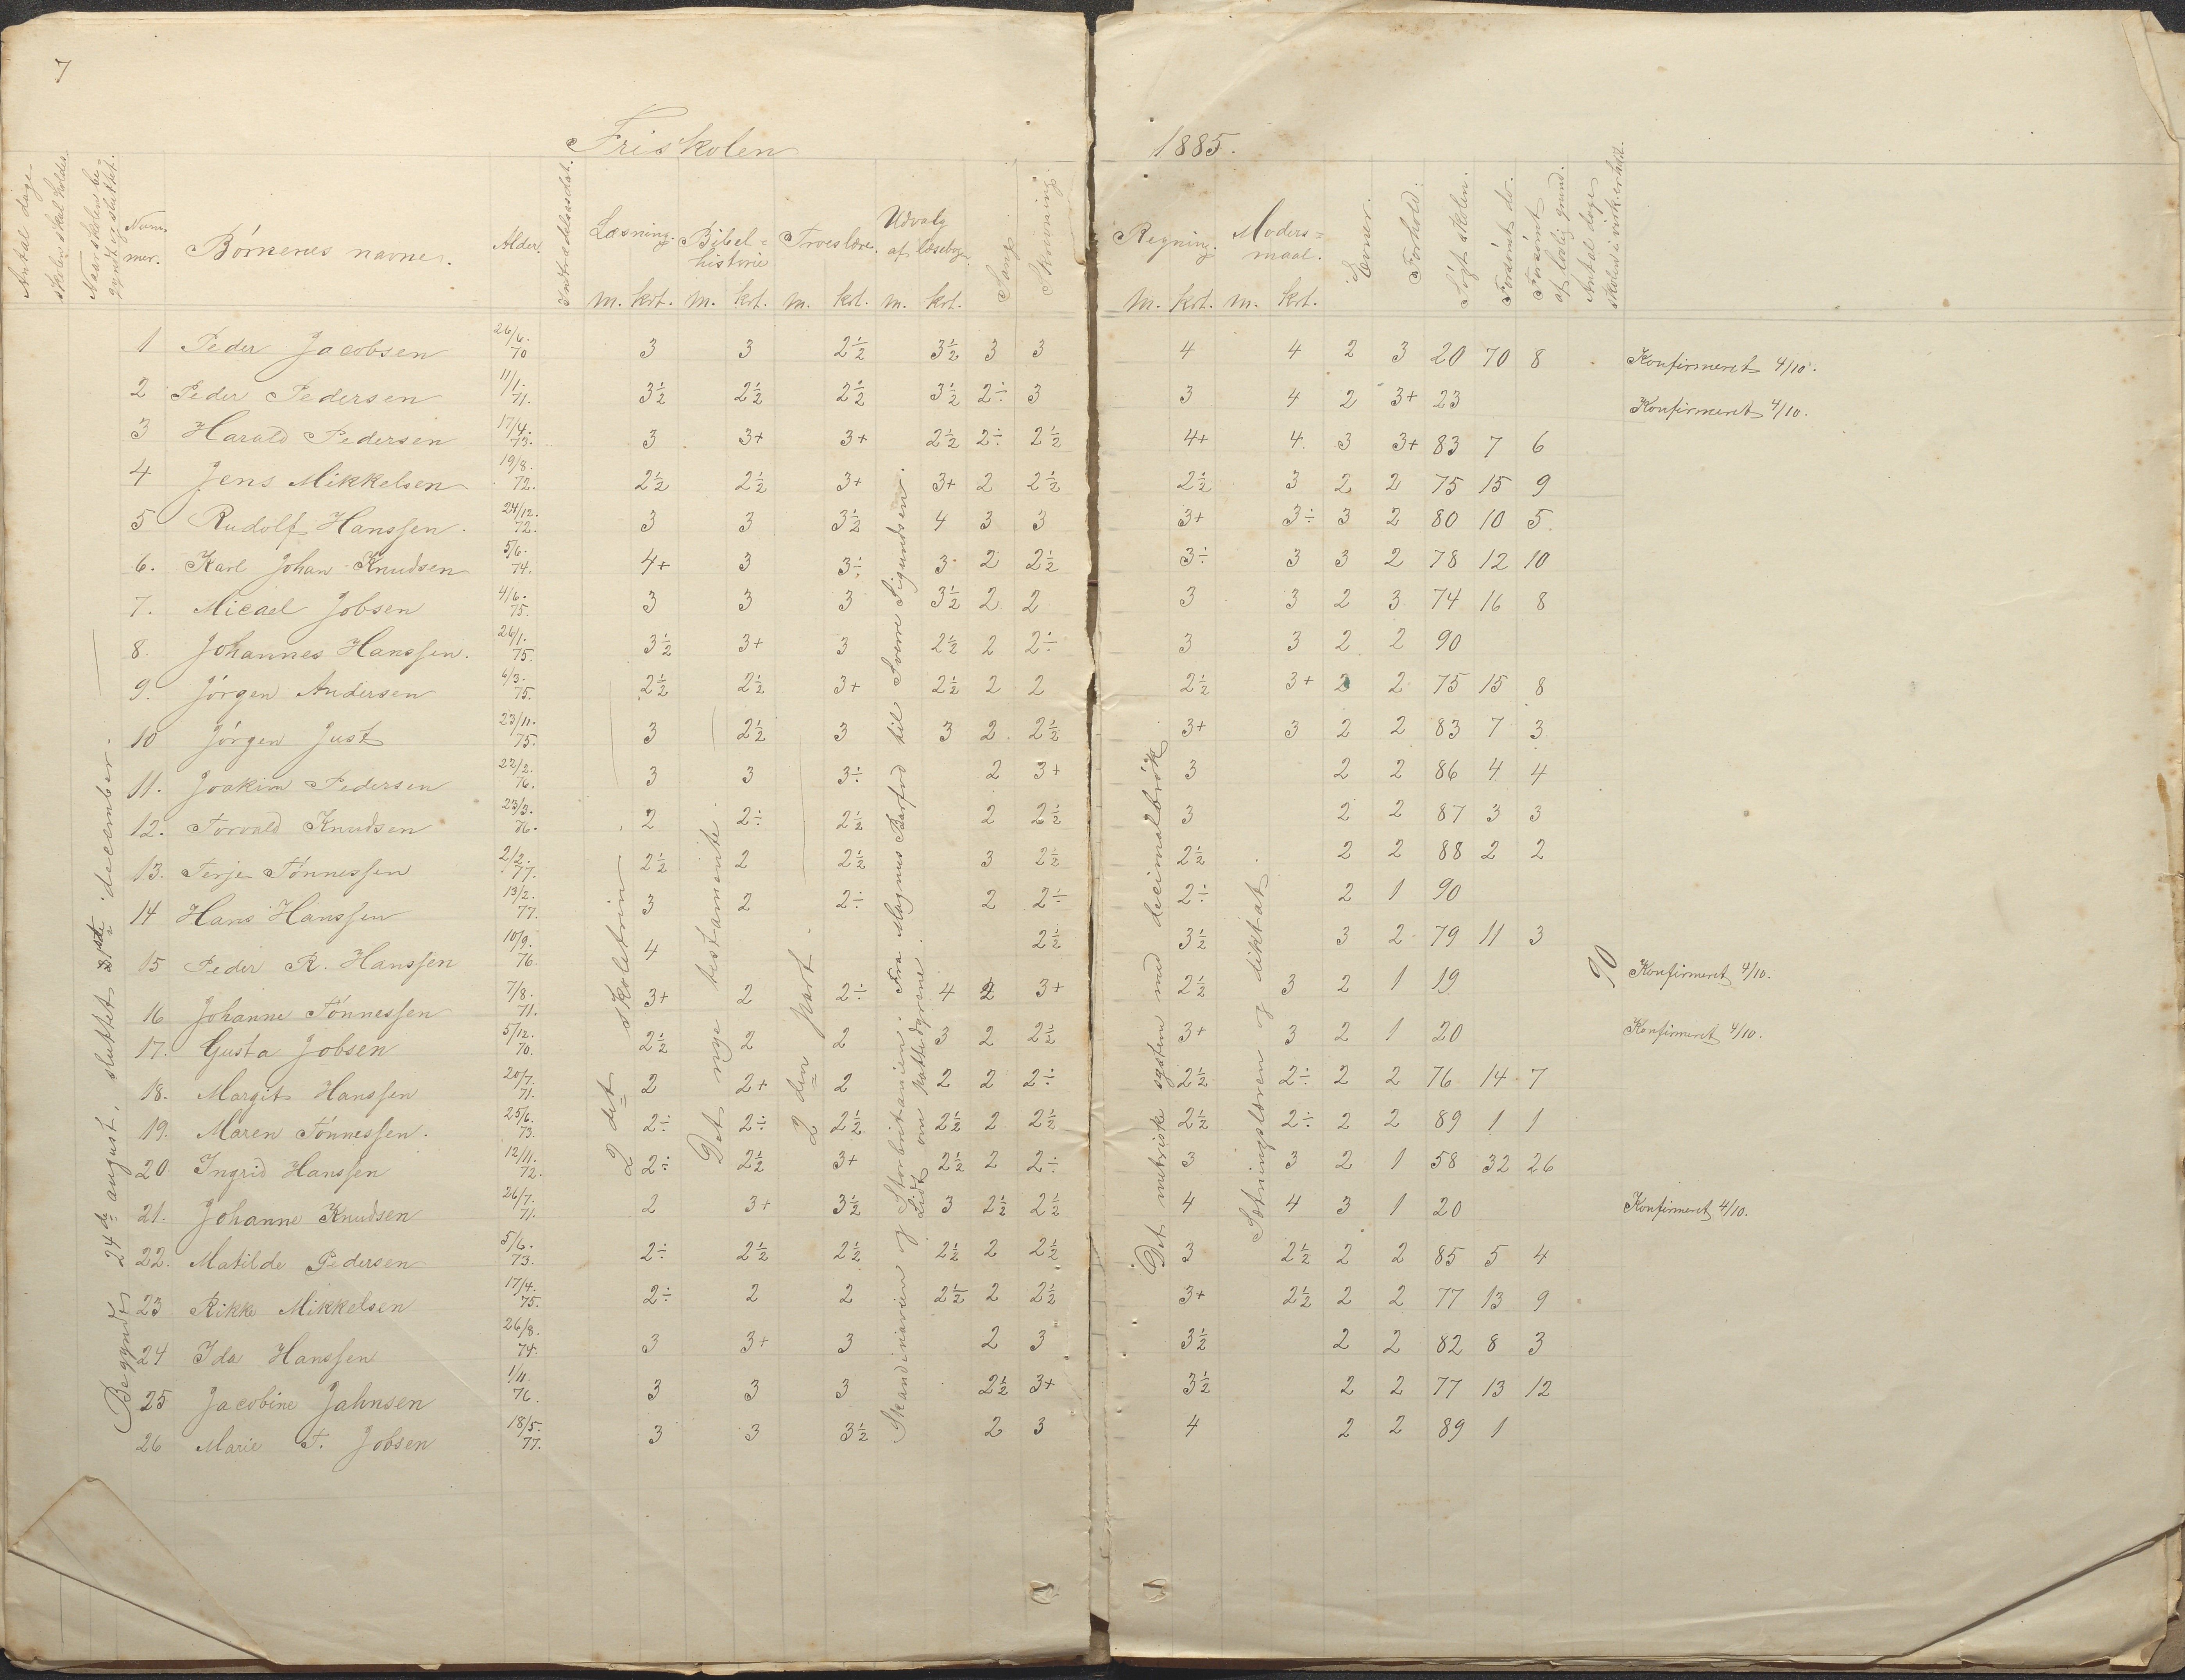 7
Friskolen 1885.
Antal dage skolen skal holdes.
Naar skolen begyndt og sluttet.
Nummer.
Børnenes navne.
Alder.
Indtrædelsesdat.
Læsning. m. krt.
Bibelhistorie m. krt.
Troeslære. m. krt.
Udvalg af læsebogen. m. krt.
Sang.
Skrivning.
Regning. m. krt.
Modersmaal. m. krt.
Evner.
Forhold.
Søgt skolen.
Forsømt do.
Forsømt af lovlig grund.
Antal dage skolen i virk.erhold.
1 Peder Jacobsen 26/6. 70 3 3 2½ 3½ 3 3 4 4 2 3 20 70 8 Konfirmeret 4/10.
2 Peder Pedersen 11/1. 71. 3½ 2½ 2½ 3½ 2÷ 3 3 4 2 3+ 23 Konfirmeret 4/10.
3 Harald Pedersen 17/4. 73. 3 3+ 3+ 2½ 2÷ 2½ 4+ 4. 3 3+ 83 7 6
4 Jens Mikkelsen 19/8. 72. 2½ 2½ 3+ 3+ 2 2½ 2½ 3 2 2 75 15 9
5 Rudolf Hanssen. 24/12. 72. 3 3 3½ 4 3 3 3+ 3÷ 3 2 80 10 5.
6. Karl Johan Knudsen 5/6. 74. 4+ 3 3÷ 3- 2 2½ 3÷ 3 3 2 78 12 10
7. Micael Jobsen 4/6. 75. 3 3 3 3½ 2 2 3 3 2 3 74 16 8
8. Johannes Hanssen. 26/1. 75. 3½ 3+ 3 2½ 2 2÷ 3 3 2 2 90
9. Jørgen Andersen 6/3. 75. 2½ 2½ 3+ 2½ 2 2 2½ 3+ 2 2 75 15 8
10 Jørgen Just 23/11. 75. 3 2½ 3 3 2. 2½ 3+ 3 2 2 83 7 3
11. Joakim Pedersen 22/2. 76. 3 3 3÷ 2 3+ 3 2 2 86 4 4
12. Torvald Knudsen 23/3. 76. 2 2÷ 2½ 2 2½ 3 2 2 87 3 3
13. Terje Tønnessen 2/2. 77. 2½ 2 2½ 3 2½ 2½ 2 2 88 2 2
14 Hans Hanssen 13/2. 77. 3 2 2÷ 2 2÷ 2÷ 2 1 90
15 Peder R. Hanssen 10/9. 76. 4 2½ 3½ 3 2 79 11 3
16 Johanne Tønnessen 7/8. 71. 3+ 2 2÷ 4 2 3+ 2½ 3 2 1 19 90 Konfirmeret 4/10.
17. Gusta Jobsen 5/12. 70. 2½ 2 2 3 2 2½ 3+ 3 2 1 20 Konfirmeret 4/10.
18. Margit Hanssen 20/7. 71. 2 2+ 2 2 2 2÷ 2½ 2÷ 2 2 76 14 7
19. Maren Tønnessen. 25/6. 73. 2÷ 2÷ 2½ 2½ 2 2½ 2½ 2÷ 2 2 89 1 1
20. Ingrid Hanssen 12/11. 72. 2÷ 2½ 3+ 2½ 2 2÷ 3 3 2 1 58 32 26
21. Johanne Knudsen 26/7. 71. 2 3+ 3½ 3 2½ 2½ 4 4 3 1 20 Konfirmeret 4/10.
22. Matilde Pedersen 5/6. 73. 2÷ 2½ 2½ 2½ 2 2½ 3 2½ 2 2 85 5 4
23 Rikke Mikkelsen 17/4. 75. 2÷ 2 2 2½ 2 2½ 3+ 2½ 2 2 77 13 9
24 Ida Hanssen 26/8. 74. 3 3+ 3 2 3 3½ 2 2 82 8 3
25 Jacobine Jahnsen 1/11. 76. 3 3 3 2½ 3+ 3½ 2 2 77 13 12
26 Marie T. Jobsen 18/5. 77. 3 3 3½ 2 3 4 2 2 89 1
Begyndt 24de august, sluttet 3die december.
2det skoletrin
Det nye testamente.
2den part.
Skandinavien og Storbritanien. Fra Magnus Barfod til Sverre Sigurdsen.
Lidt om pattedyrene.
Det metriske system med decimalbrøk
Sætningslæren og diktat